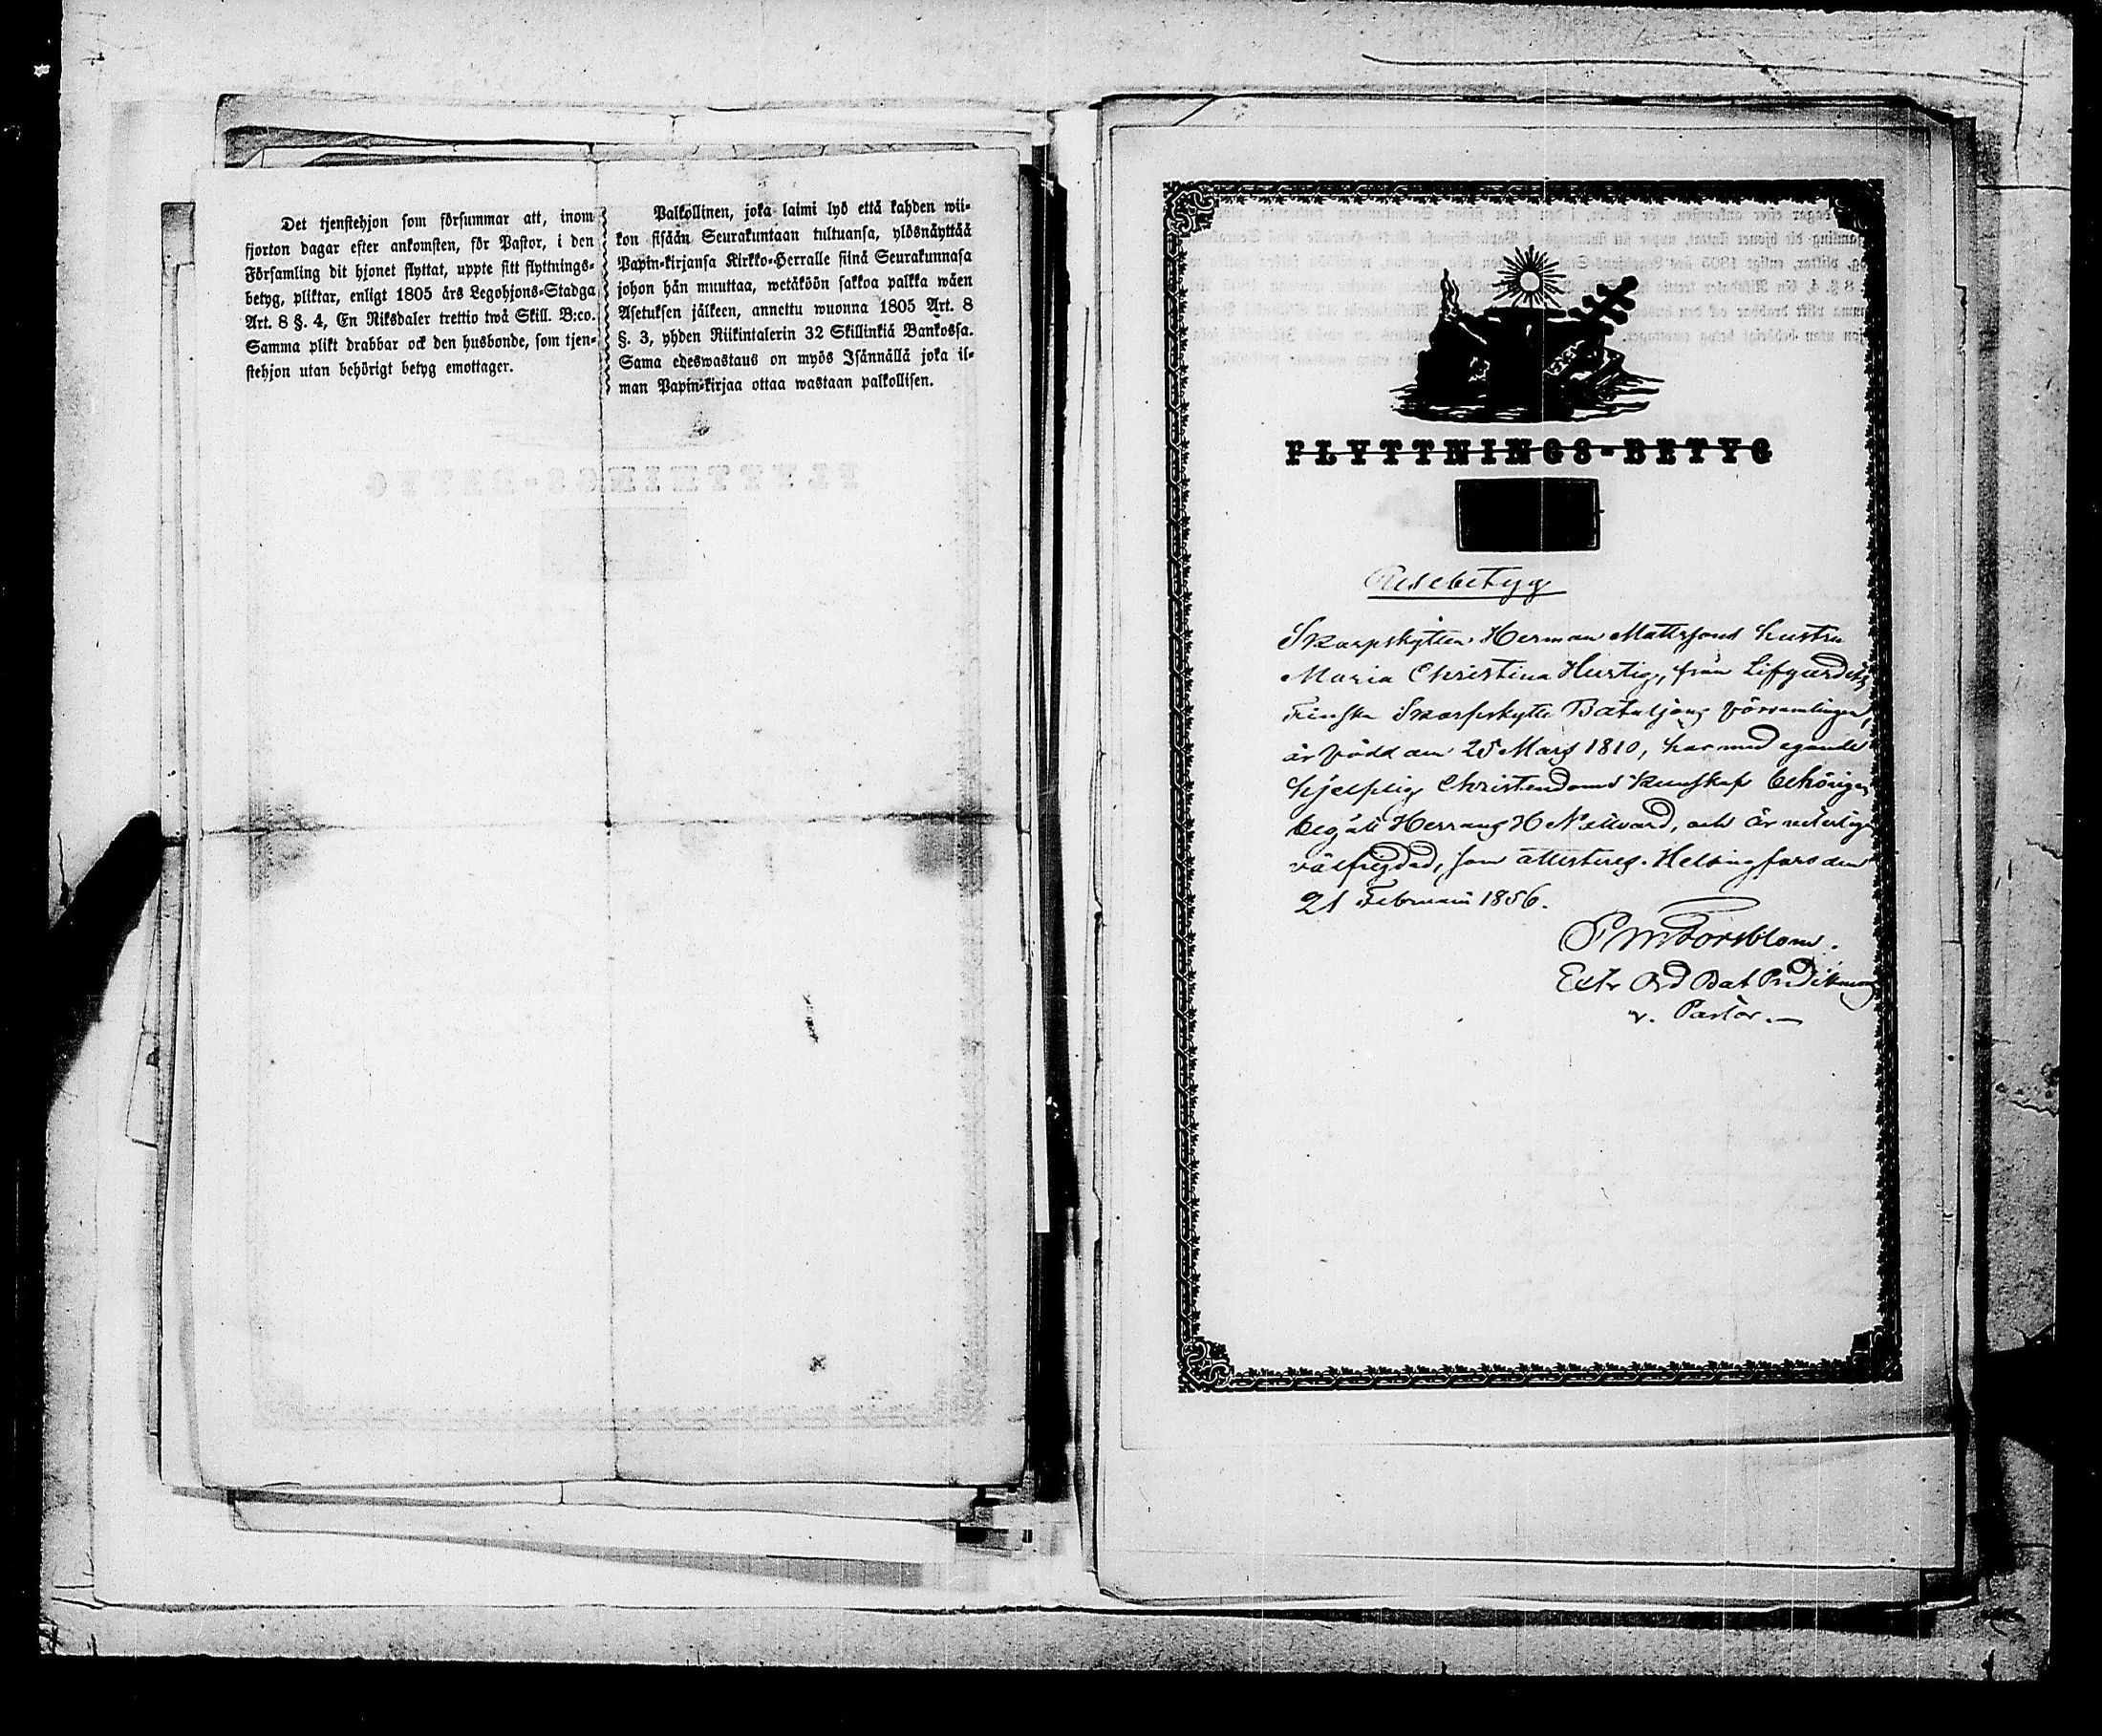 Det tjenstehjon som försummar att, inom
fjorton dagar efter ankomsten, för Pastor, i den
Församling dit hjonet flyttat, uppte sitt flyttnings-
betyg, pliktar, enligt 1805 års Legohjons-Stadga
Art. 8 §. 4, En Riksdaler trettio twå Skill. B:co.
Samma plikt drabbar ock den husbonde, som tjen-
stehjon utan behörigt betyg emottager.
Palkollinen, joka laimi lyö että kahden wii-
kon sisään Seurakuntaan tultuansa, ylösnäyttää
Papin-kirjansa Kirkko-Herralle siinä Seurakunnasa
johon hän muuttaa, wetäköön sakkoa palkka wäen
Asetuksen jälkeen, annettu wuonna 1805 Art. 8
§. 3, yhden Riikintalerin 32 Skillinkiä Bankossa.
Sama edeswastaus on myös Isännällä joka il-
man Papin-kirjaa ottaa wastaan palkollisen.
FLYTTNINGS-BETYG
Resebetyg
Skarpskytten Herman Mattssons hustru
Maria Christina Hurtig, från Lifgardets
Finska Skarpskytte Bataljons församlingen,
är född den 25 Mars 1810, har med egande
hjelplig Christendoms kunskap behörigen
begått Herrans H Nattvard, och är
välfrejdad, som attesteras. Helsingfors den
21 Februarii 1856.
Forsblom.
Extr Ord Bat Predikant
v. Pastor.